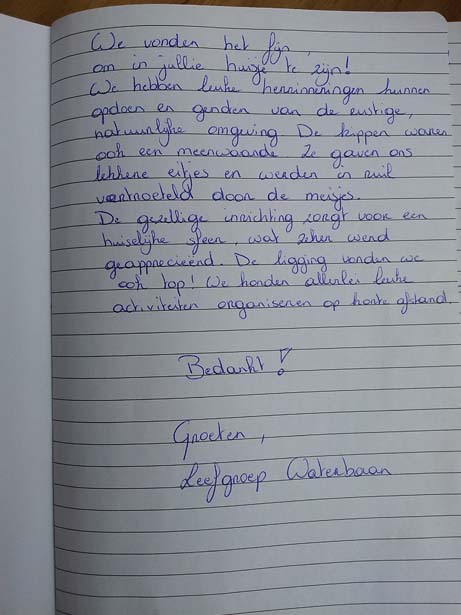 We vonden het fijn,
om in jullie huisje te zijn!
We hebben leuke herinneringen kunnen
opdoen en genoten van de rustige,
natuurlijke omgeving. De kippen waren
ook een meerwaarde. Ze gaven ons
lekkere eitjes en werden in ruil
vertroeteld door de meisjes.
De gezellige inrichting zorgt voor een
huiselijke sfeer, wat zeker werd
geapprecieerd. De ligging vonden we
ook top! We konden allerlei leuke
activiteiten organiseren op korte afstand.
Bedankt!
Groeten,
Leefgroep Waterbaan